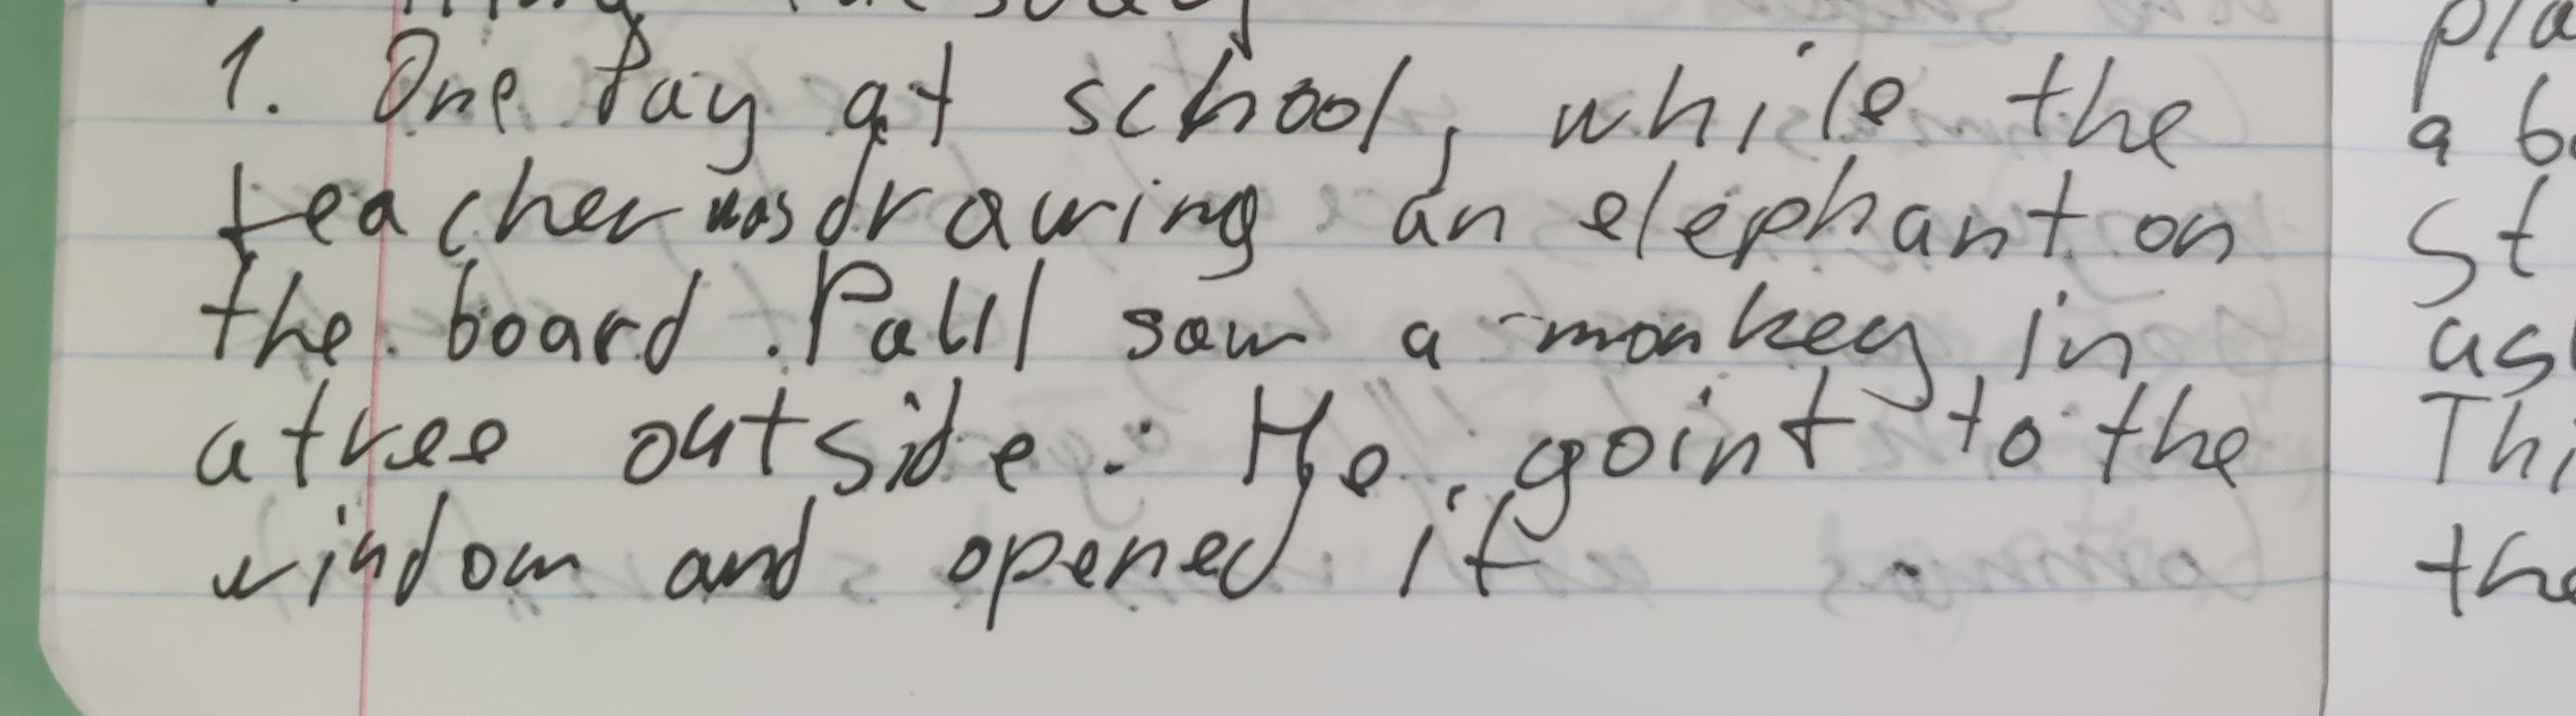 1. One day at school, while the
teacher was drawing an elephant on
the board. Paul saw a monkey in
a tree outside. He goint to the
window and opened it
pla
a b
St
as
Thi
the